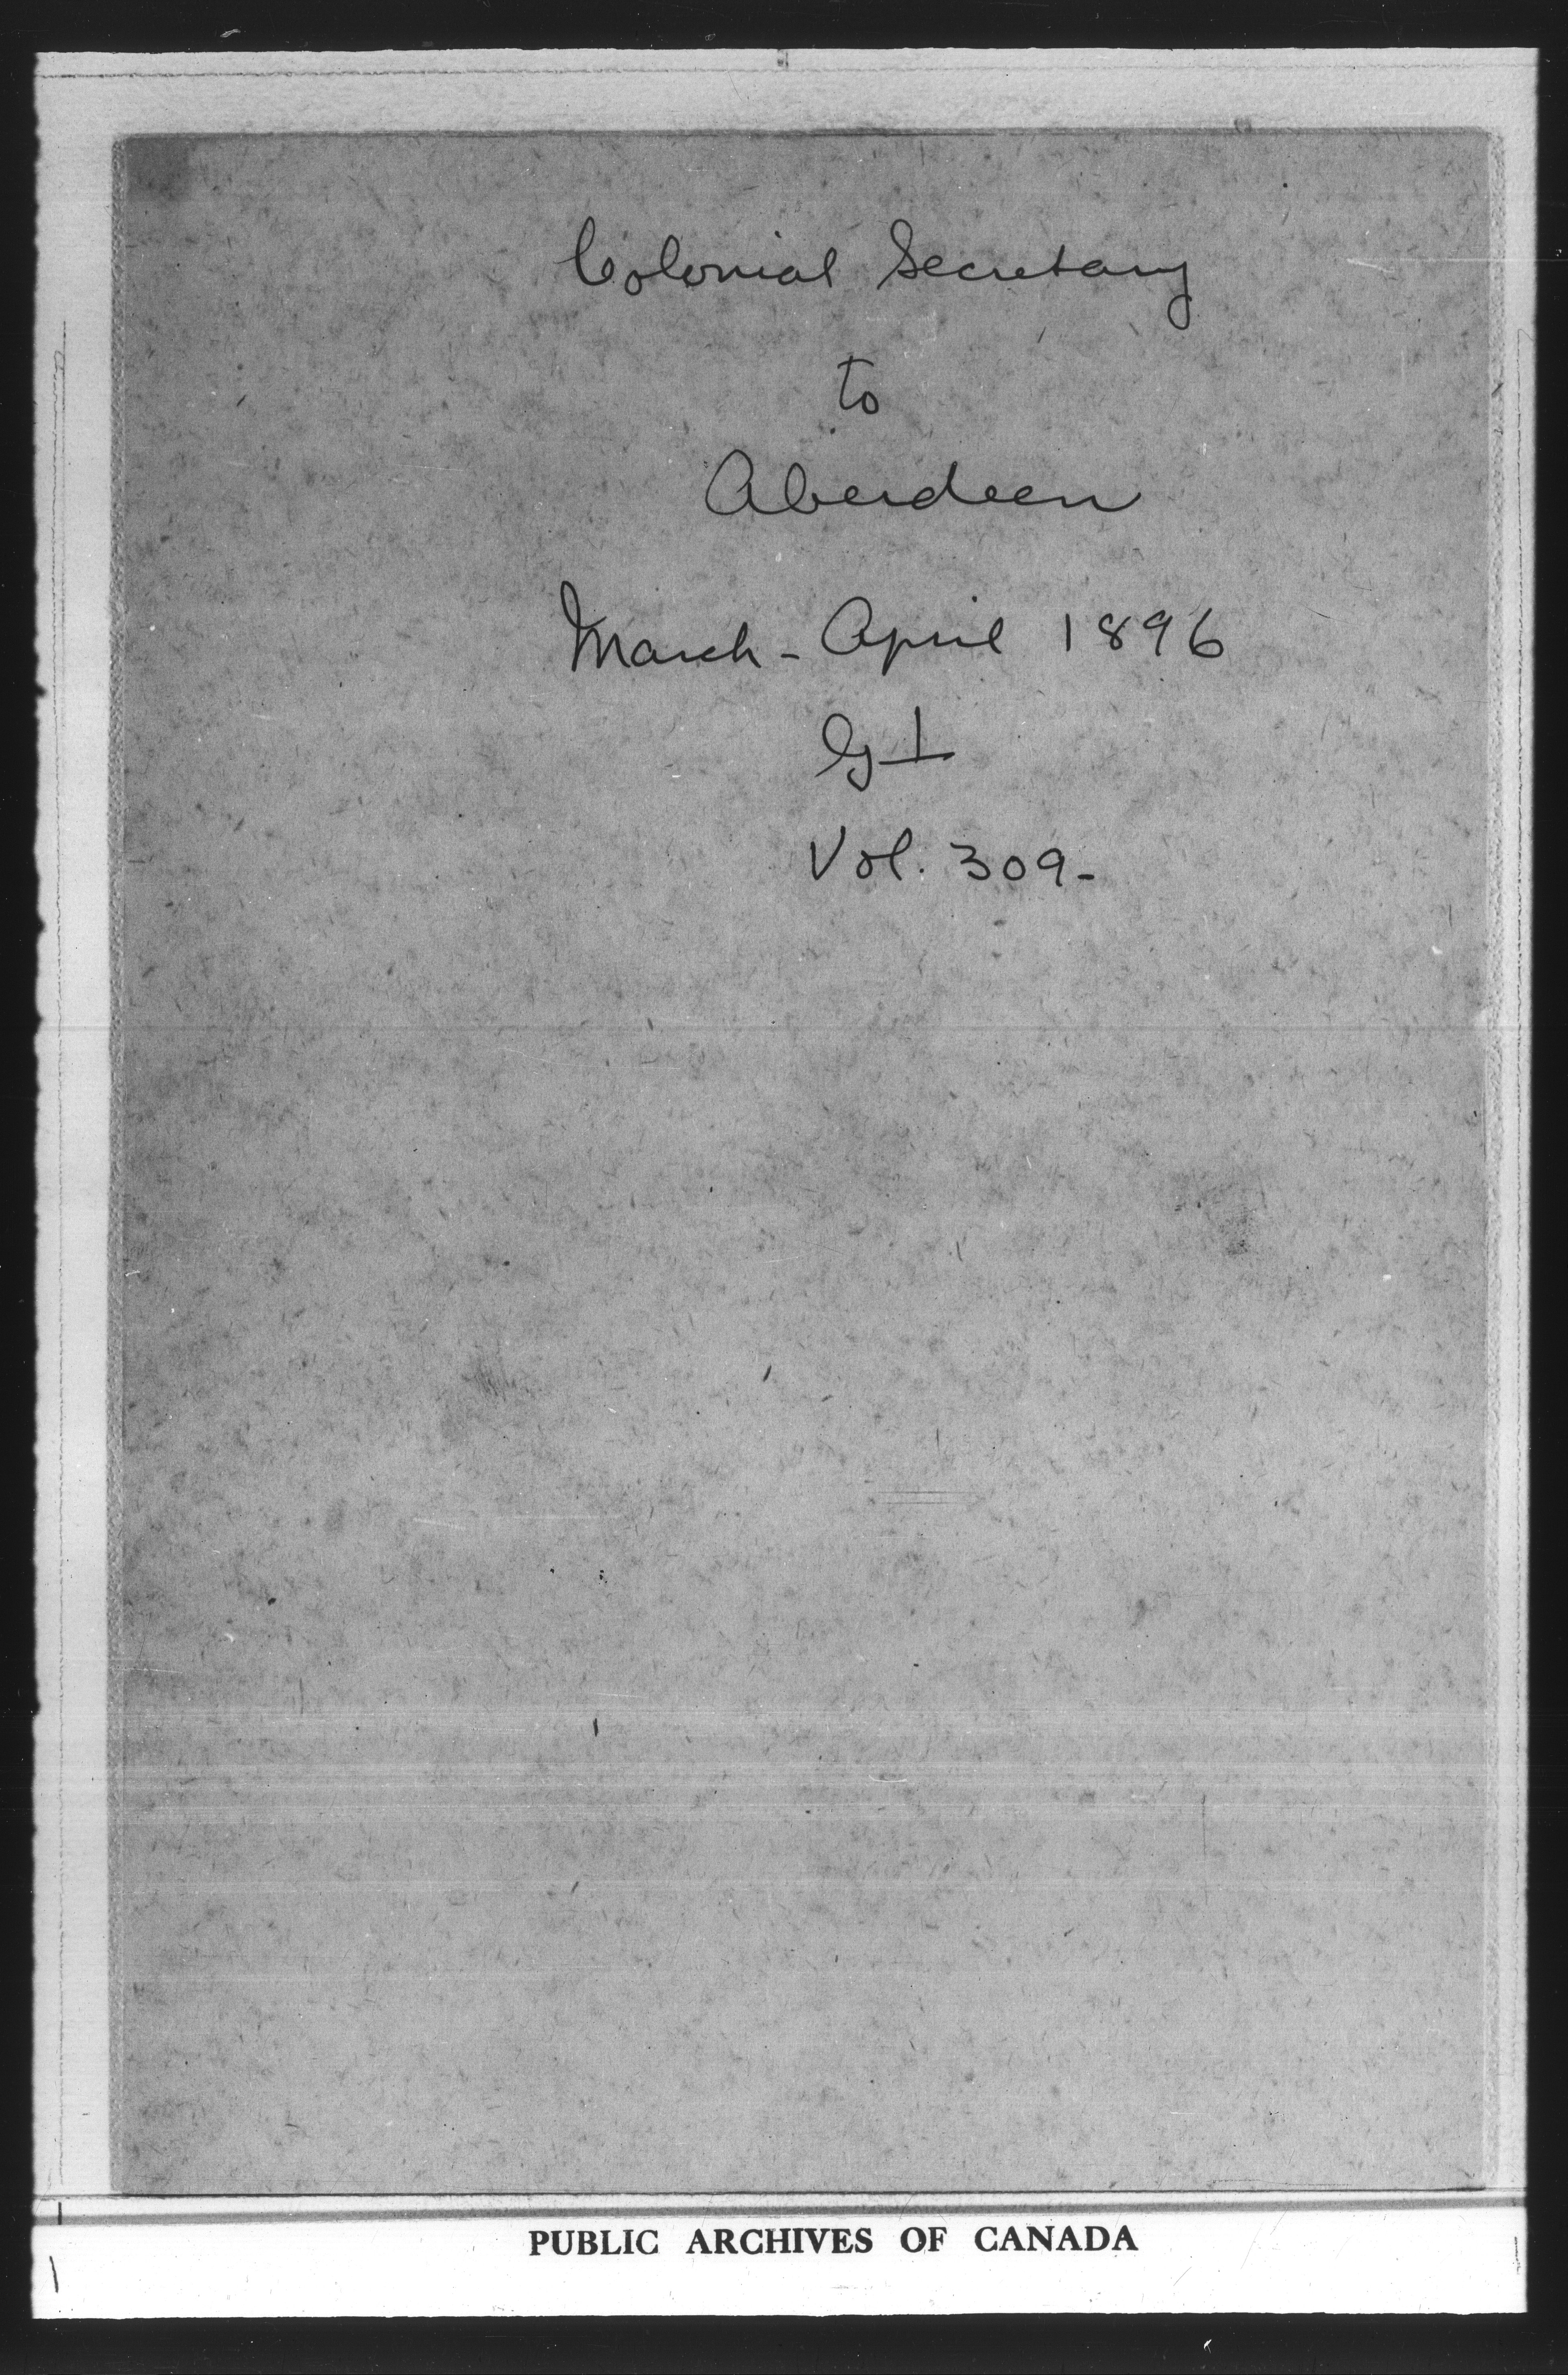 Colonial Secretary
to
Aberdeen
March - April 1896
G 1
Vol. 309-
PUBLIC ARCHIVES OF CANADA